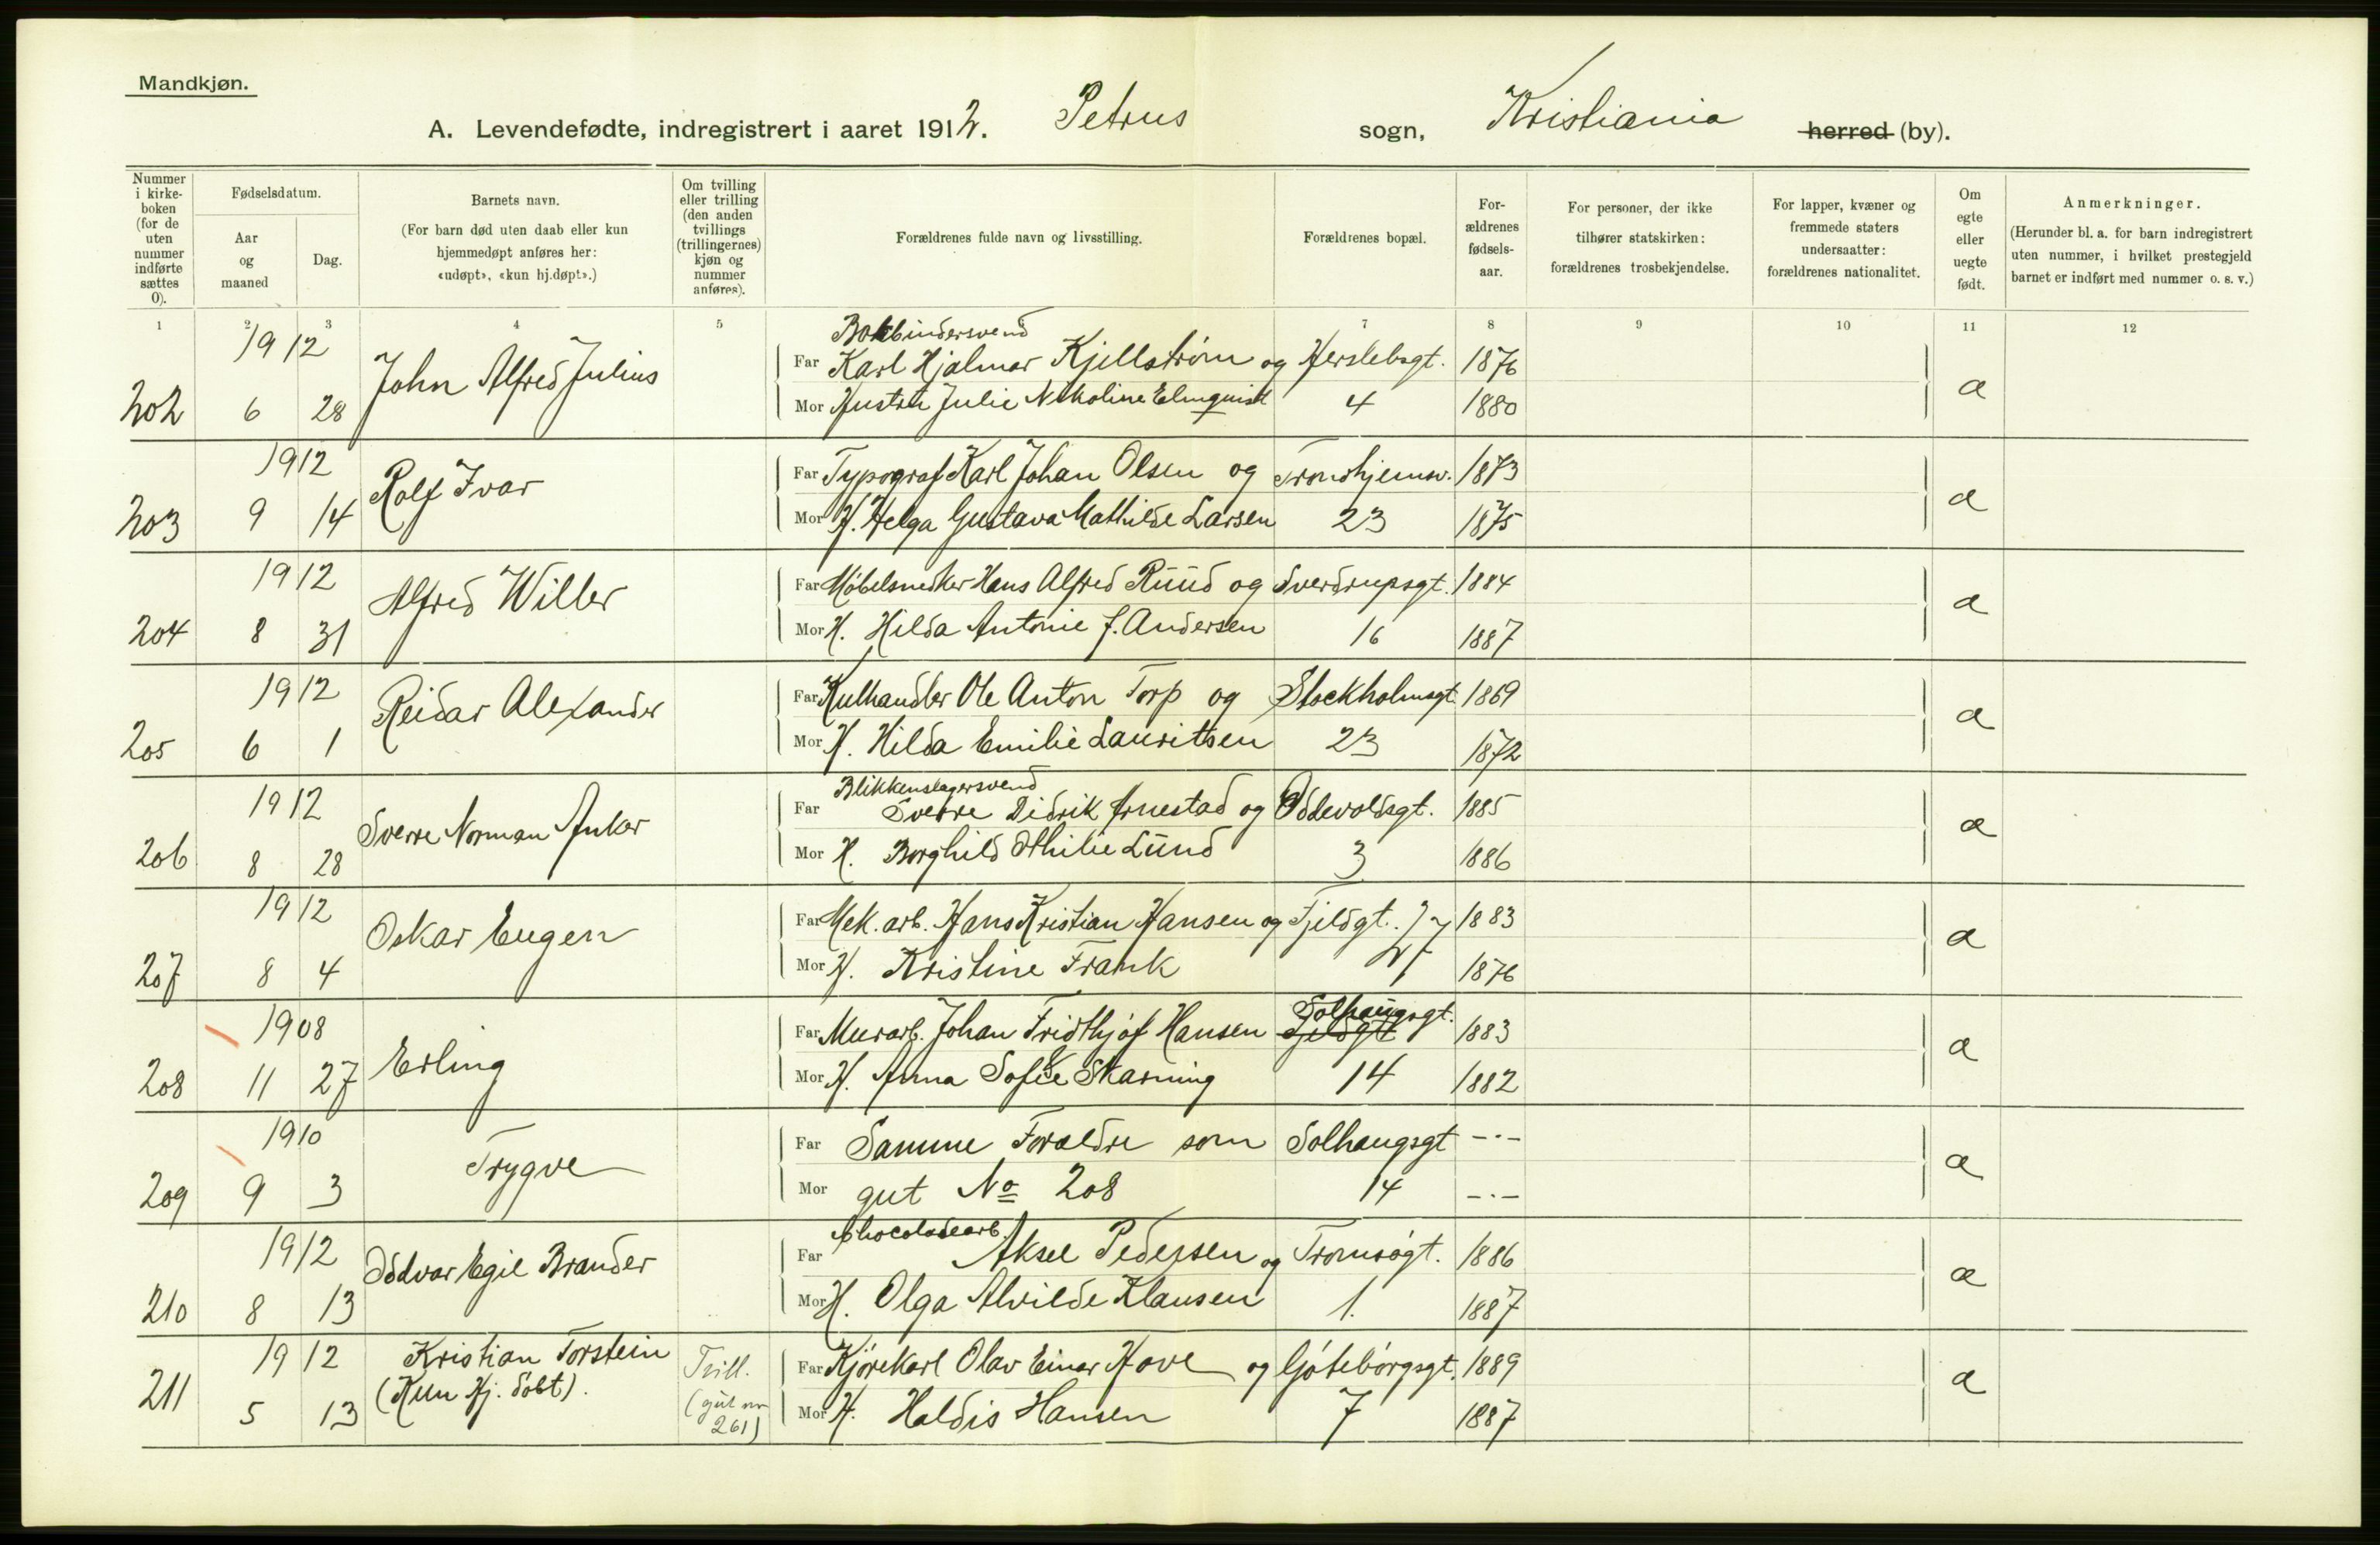 Mandkjøn.
A. Levendefødte, indregistrert i aaret 1912. Petrus sogn, Kristiania herred (by).
Nummer i kirkeboken (for de uten nummer indførte sættes 0).
Fødselsdatum.
Aar og maaned
Dag.
Barnets navn.
(For barn død uten daab eller kun hjemmedøpt anføres her: «udøpt», «kun hj.døpt».)
Om tvilling eller trilling (den anden tvillings (trillingernes) kjøn og nummer anføres).
Forældrenes fulde navn og livsstilling.
Forældrenes bopæl.
Forældrenes fødselsaar.
For personer, der ikke tilhører statskirken: forældrenes trosbekjendelse.
For lapper, kvæner og fremmede staters undersaatter: forældrenes nationalitet.
Om egte eller uegte født.
Anmerkninger.
(Herunder bl. a. for barn indregistrert uten nummer, i hvilket prestegjeld barnet er indført med nummer o. s. v.)
1 2 3 4 5 7 8 9 10 11 12
1912 Bokbindersvend
John Alfred Julius Far Karl Hjalmar Kjellstrøm og Herslebsgt. 1876
202 6 28 Mor Hustru Julie Nikoline Elmquist 4 1880 a
1912 Rolf Ivar Far Typograf Karl Johan Olsen og Trondhjemsv. 1873
203 9 14 Mor H. Helga Gustava Mathilde Larsen 23 1875 a
1912 Alfred Willer Far Møbelsnedker Hans Alfred Ruud og Sverdrupsgt. 1884
204 8 31 Mor H. Hilda Antonie J. Andersen 16 1887 a
1912 Reidar Alexander Far Kulhandler Ole Anton Torp og Stockholmsgt. 1869
205 6 1 Mor H. Hilda Emilie Lauritsen 23 1872 a
1912 Blikkenslagersvend
Sverre Norman Anker Far Sverre Didrik Arnestad og Oddevoldsgt. 1885
206 8 28 Mor H. Borghild Othilie Lund 3 1886 a
1912 Oskar Eugen Far Mek. arb. Hans Kristian Hansen og Fjeldgt. 1883
207 8 4 Mor H. Kristine Frank 1876 a
1908 Solhaugsgt.
Erling Far Murarb. Johan Fridthjof Hansen Fjeldgt 1883
208 11 27 Mor H. Anna Sofie Skarning 14 1882 a
1910 Trygve Far Samme Foraldre som Solhaugsgt -·-
209 9 3 Mor gut No 208 14 -·- a
1912 Chocoladearb.
Oddvar Egil Brander Far Aksel Pedersen og Tromsøgt. 1886
210 8 13 Mor H. Olga Alvilde Klausen 1. 1887 a
1912 Kristian Torstein Trill. Far Kjørekarl Olav Einar Hove og Gøtebørgsgt. 1889
211 5 13 (Kun Hj. døbt). (gut nr 261) Mor H. Haldis Hansen 7 1887 a